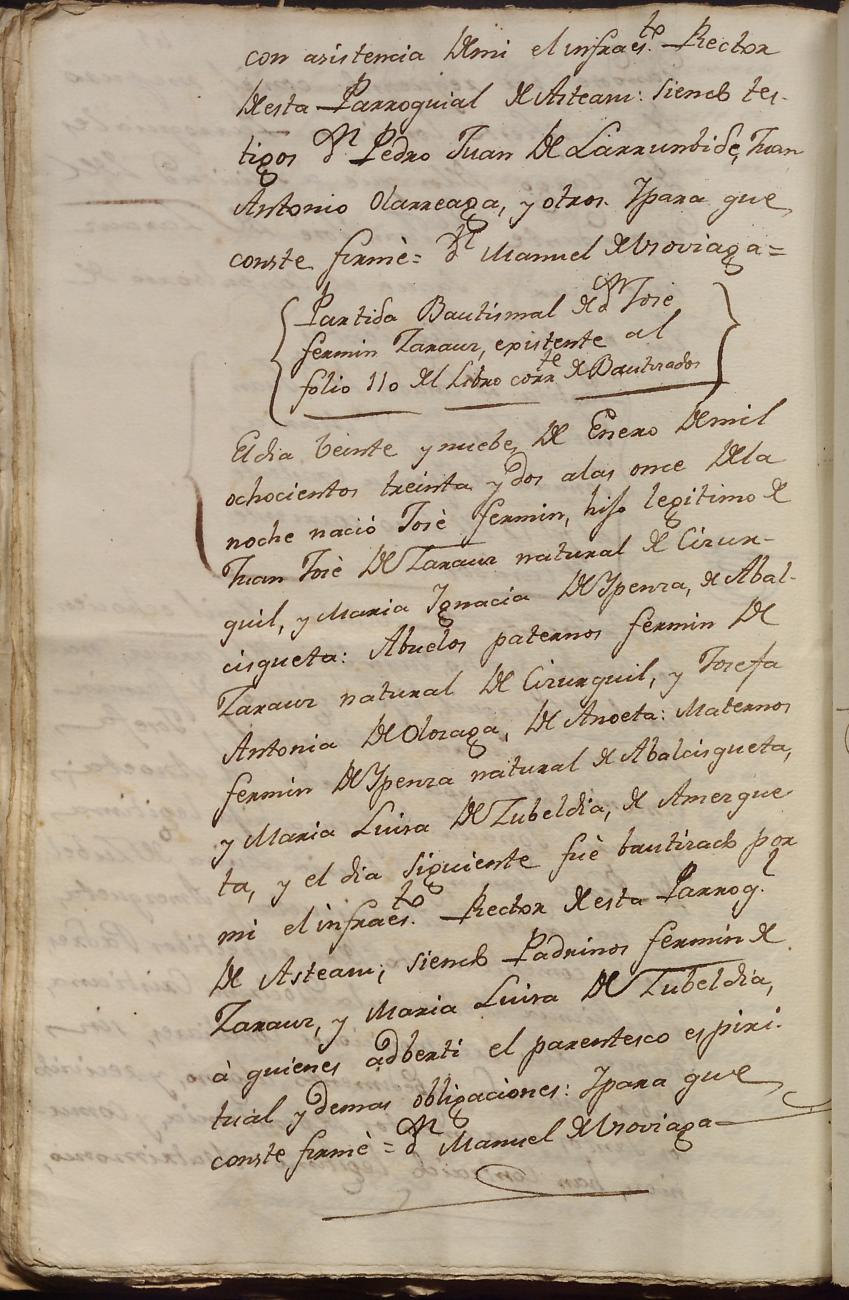 con asistencia Demi el infraes.to Rector
Desta Parroquial de Asteasu: siendo tes-
tigos Dn Pedro Juan De Larrundide, Juan
Antonio Olarreaga, y otros. Ypara que
conste firmè = Dn Manuel de Vroviaga =
Partida Bautismal de dn Josè
fermin Zarauz, existente al
folio 110 del Libro corrte de Bautizados
El dia veinte y nuebe, De Enero Demil
ochocientos treinta y dos alas once Dela
noche naciò Josè fermin, hijo legitimo de
Juan Josè De Zarauz natural de Cizur-
quil, y Maria Ygnacia De Ypenza, de Abal-
cisqueta: Abuelos paternos fermin De
Zarauz natural De Cizurquil, y Josefa
Antonia De Olozaga, De Anoeta: Maternos
fermin De Ypenza natural de Abalcisqueta,
y Maria Luisa De Zubeldia, de Amezque
ta, y el dia siguiente fuè bautizado por
mi el infraes.to Rector desta Parroq.l
De Asteasu; siendo Padrinos fermin de
Zarauz, y Maria Luisa De Zubeldia,
à quienes adbertí el parentesco espiri-
tual y demas obligaciones: Ypara que
conste firmè = Dn Manuel de Vroviaga